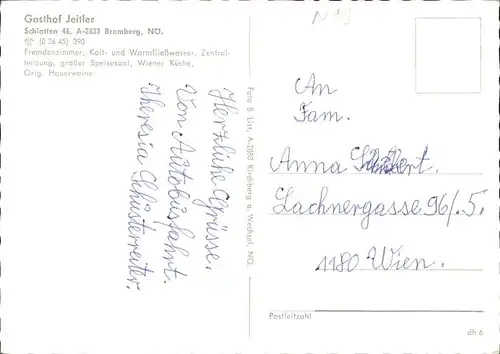 Gasthof Jeitler
Schlatten 46, A-2833 Bromberg, NÖ.
☎ (0 26 45) 390
Fremdenzimmer, Kalt- und Warmfließwasser, Zentral-
heizung, großer Speisesaal, Wiener Küche,
Orig. Hauerweine.
Herzliche Grüsse.
Von Autobusfahrt.
Theresia Schusterreiter.
Foto B. List, A-2880 Kirchberg a. Wechsel, NÖ.
An
Fam.
Anna
Lachnergasse 96/.5.
1180 Wien.
Postleitzahl
dh 6